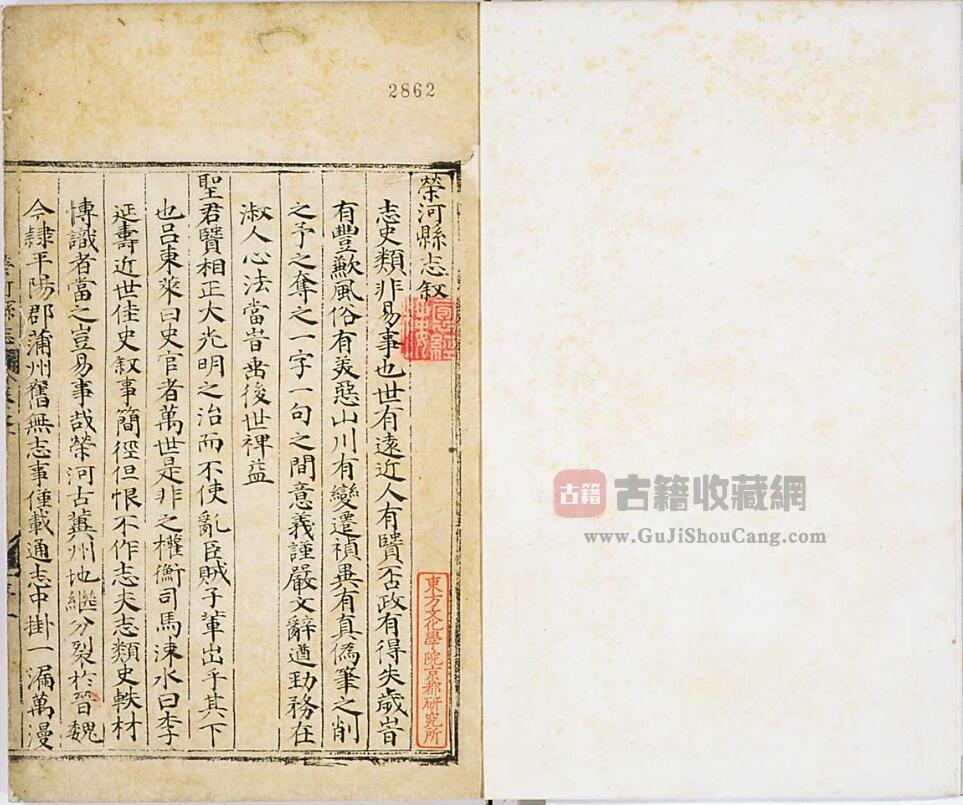 2862
榮河縣志叙
志史類非易事也世有遠近人有賢否政有得失歲旹
有豐歉風俗有美惡山川有變遷禎異有真偽筆之削
之予之奪之一字一句之間意義謹嚴文辭遒勁務在
淑人心法當旹垂後世裨益
聖君賢相正大光明之治而不使亂臣賊子軰出乎其下
也吕東萊曰史官者萬世是非之權衡司馬涑水曰李
延壽近世佳史叙事簡徑但恨不作志夫志類史軼材
博識者當之豈易事哉榮河古冀州地繼分裂於晉魏
今隷平陽郡蒲州舊無志事僅載通志中掛一漏萬漫
東方文化學院京都研究所
古籍
古籍收藏網
www.GuJiShouCang.com